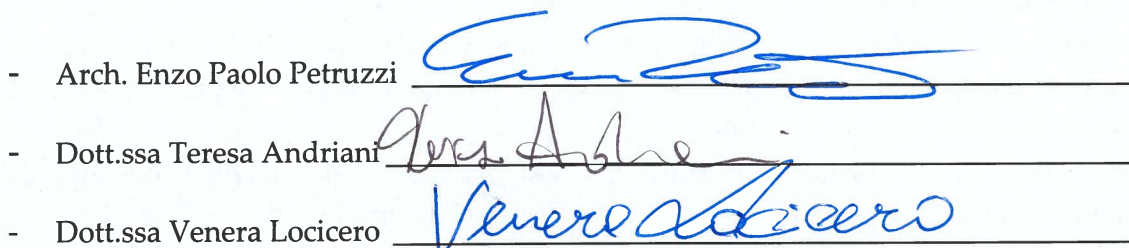 - Arch. Enzo Paolo Petruzzi
- Dott.ssa Teresa Andriani Teresa Andriani
- Dott.ssa Venera Locicero Venera Locicero